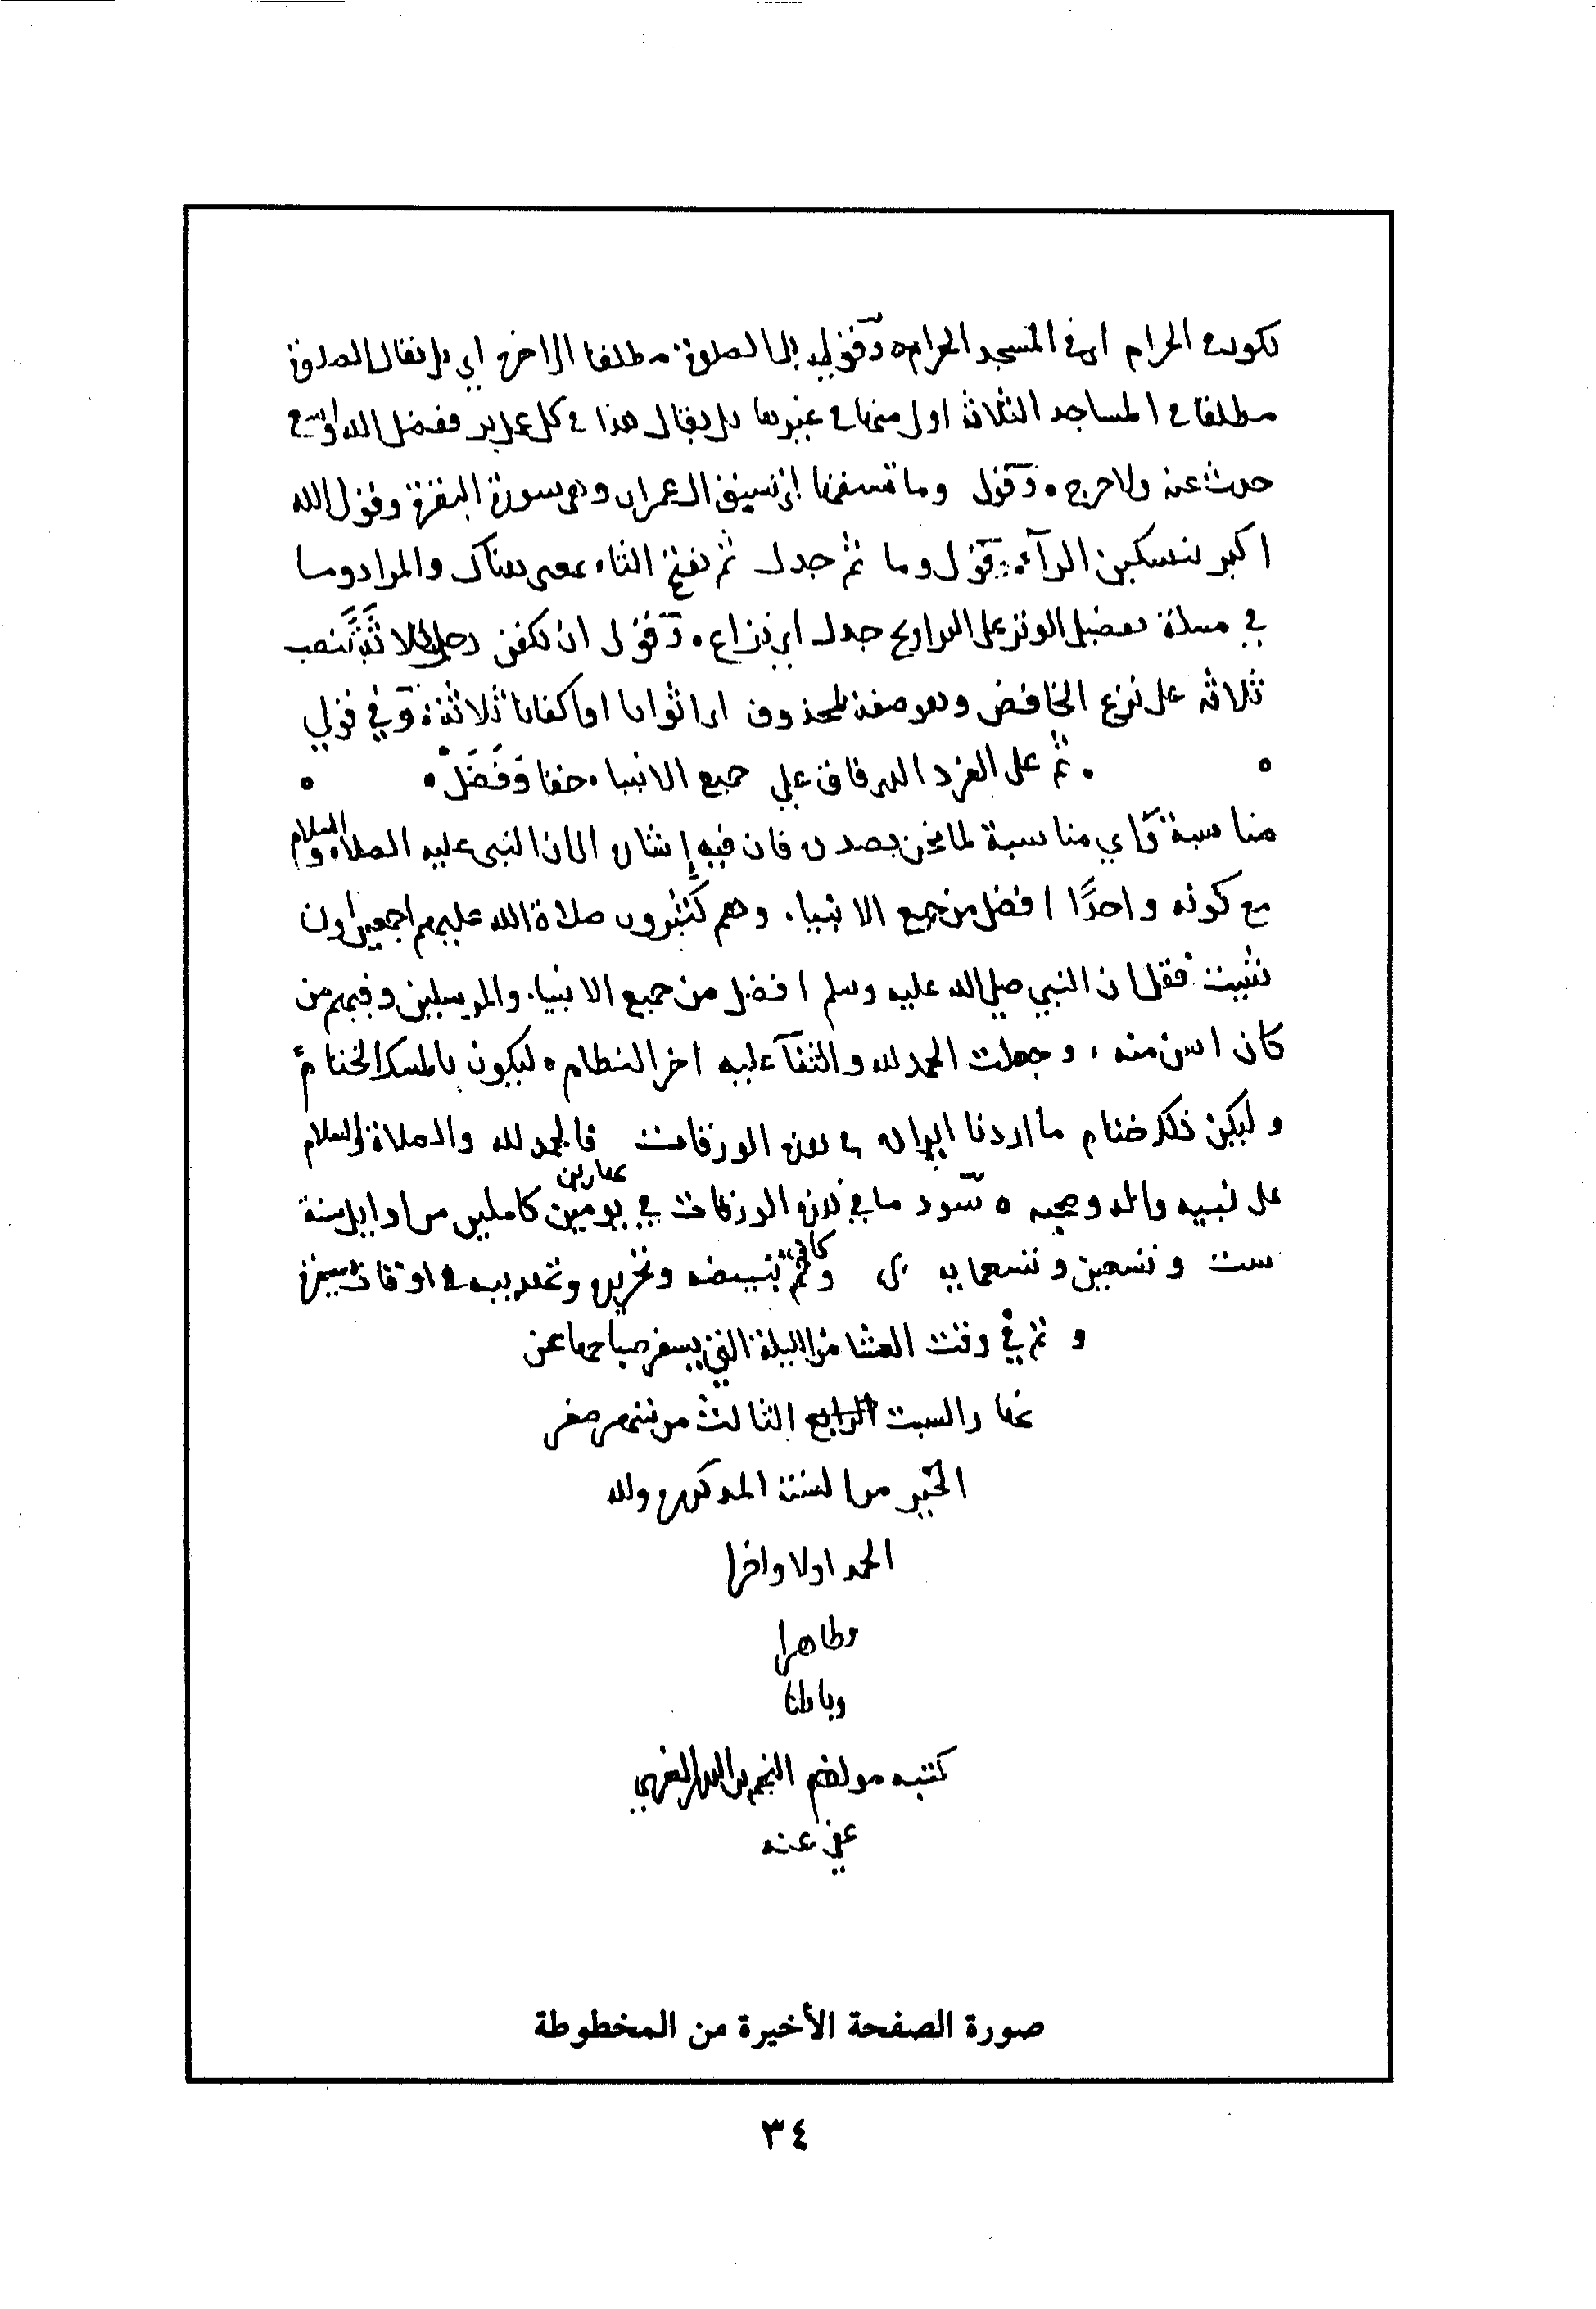 تكون في الحرام اي في المسجد الحرام وقولي بل الصلوة مطلقا الى اخره اي بل يقال الصلوة
مطلقا في المساجد الثلاثة اولى منها في غيرها بل يقال هذا في كل عمل بر ففضل الله واسع
حدث عنه ولا حرج وقولي وما تسفهها ال عمران وهي سورة البقرة وقول الله
اكبر بتسكين الرآء وقولي وما ثم جدل ثم بفتح الثاء بمعنى هناك والمراد وما
في مسلة تفضيل الوتر على التراويح جدل اي نزاع وقولي ان تكفن رجلا ثلاثة بنصب
ثلاثة على نزع الخافض وهو صفة لمحذوف اي اثوابا او اكفانا ثلاثة وفي قولي
ثم على الفرد الذي فاق على جميع الانبيا حقا وفضل
مناسبة واي مناسبة لما نحن بصدده فان فيه إشارة الى ان النبي عليه الصلاة والسلام
مع كونه واحدًا افضل من جميع الانبياء وهم كثيرون صلاة الله عليهم اجمعين وان
شئت فقل ان النبي صلى الله عليه وسلم افضل من جميع الانبياء والمرسلين وفيهم من
كان اسن منه وجعلت الحمد لله والثنآ عليه اخر النظام ليكون بالمسك الختام
وليكن ذلك ختام ما اردنا ايراده في هذه الورقات فالحمد لله والصلاة والسلام
على نبيه واله وصحبه سود ما في هذه الورقات في يومين كاملين من اوايل سنة
ست وتسعين وتسعماية وثم تبييضه وتحريره وتهذيبه في اوقات يسيرة
وتم في وقت العشا من الليلة التي يسفر صباحها عن
نهار السبت الرابع الثالث من شهر صفر
الخير من السنة المذكورة ولله
الحمد اولا واخرا
وظاهرا
وباطنا
كتبه مولفه النجم بن البدر الغزي
عفي عنه
صورة الصفحة الأخيرة من المخطوطة
٣٤